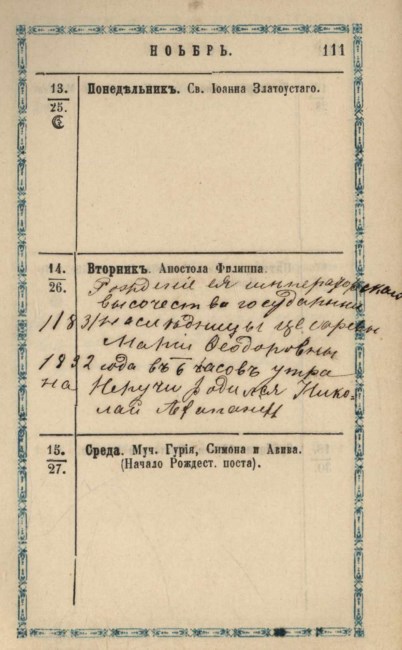 НОЬБРЬ.
111
13.
25.
Понедѣльникъ. Св. Іоанна Златоустаго.
14.
26.
Вторникъ. Апостола Филиппа.
Рожденіе ея императорскаго
высочества государыни
наслѣдницы цесаревны
Маріи Ѳеодоровны
года въ 6 часовъ утра
на Неручи родился Нико-
лай
15.
27.
Среда. Муч. Гурія, Симона и Авива.
(Начало Рождест. поста).